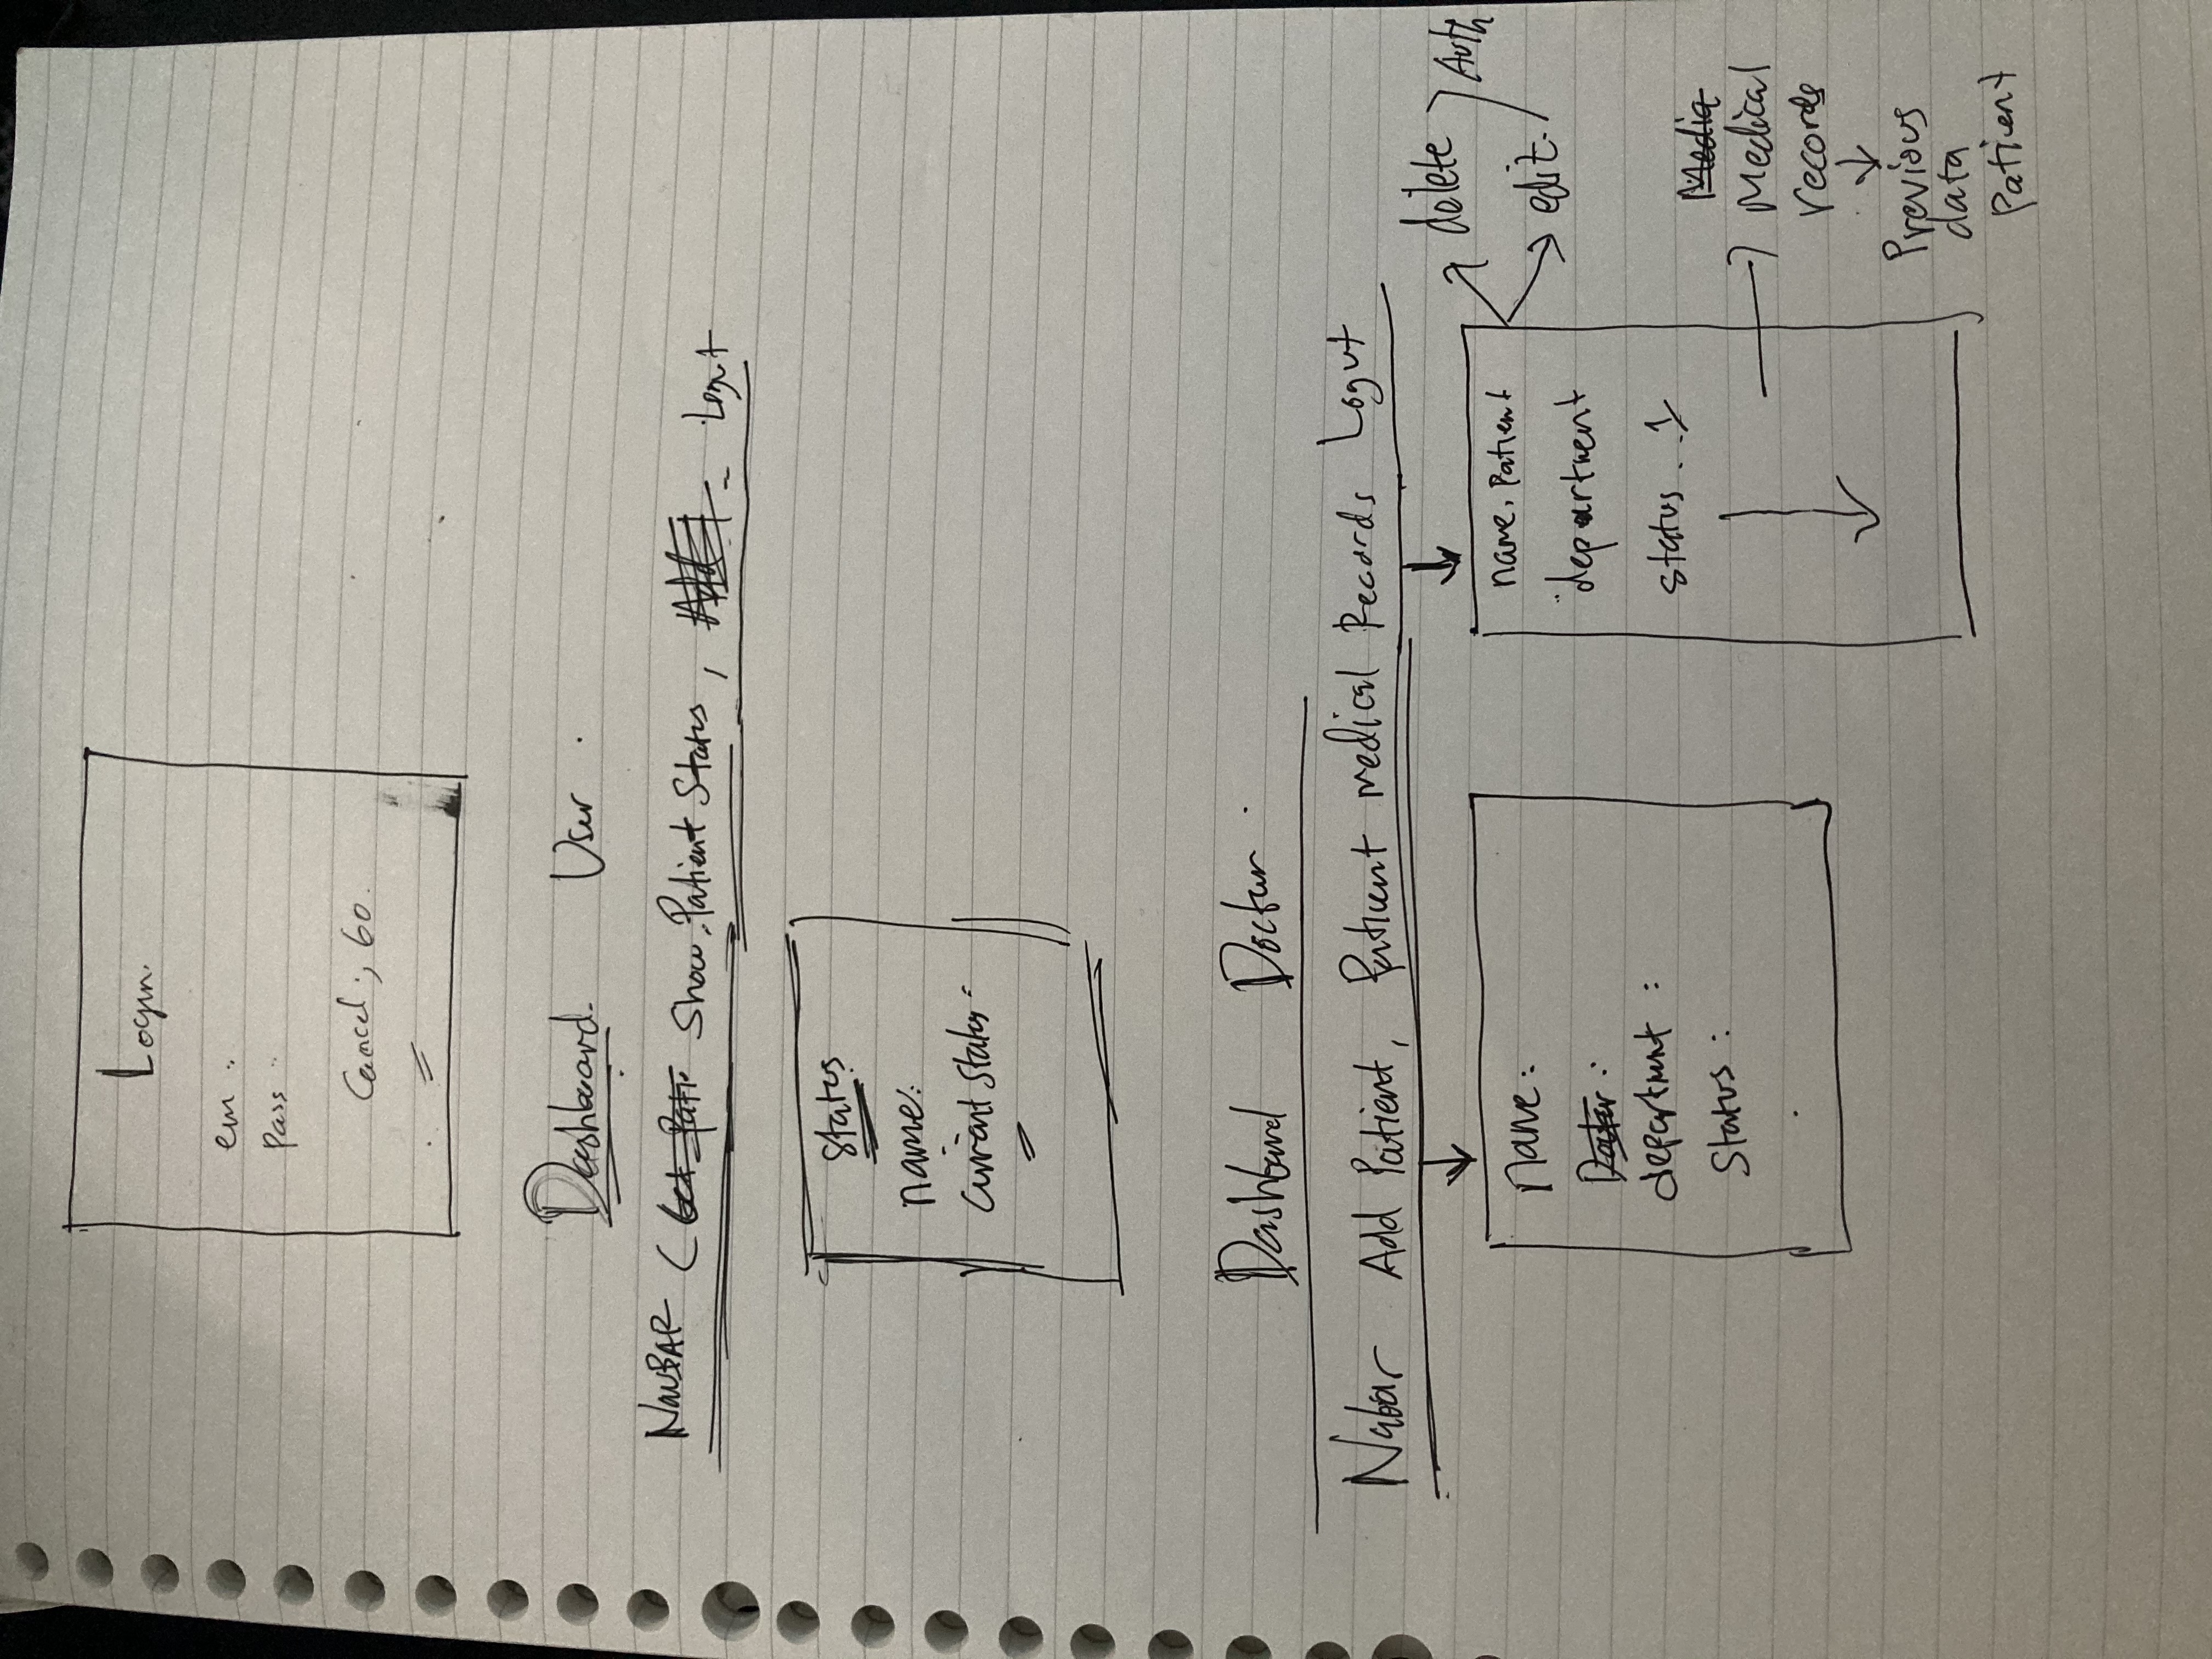 Login.
em :
Pass :
Cancel ; Go.
Dashboard. User .
NavBAR ( Get Pati Show Patient Status, Add Logut
Status
name:
current status :
Dashboard Doctur .
Nabar Add Patient, Patient medical Records Logut
name :
Doctor :
department :
Status :
name. Patient
department
status . . 1
delete
edit.
Auth
Media
Medical
records
Previous
data
Patient